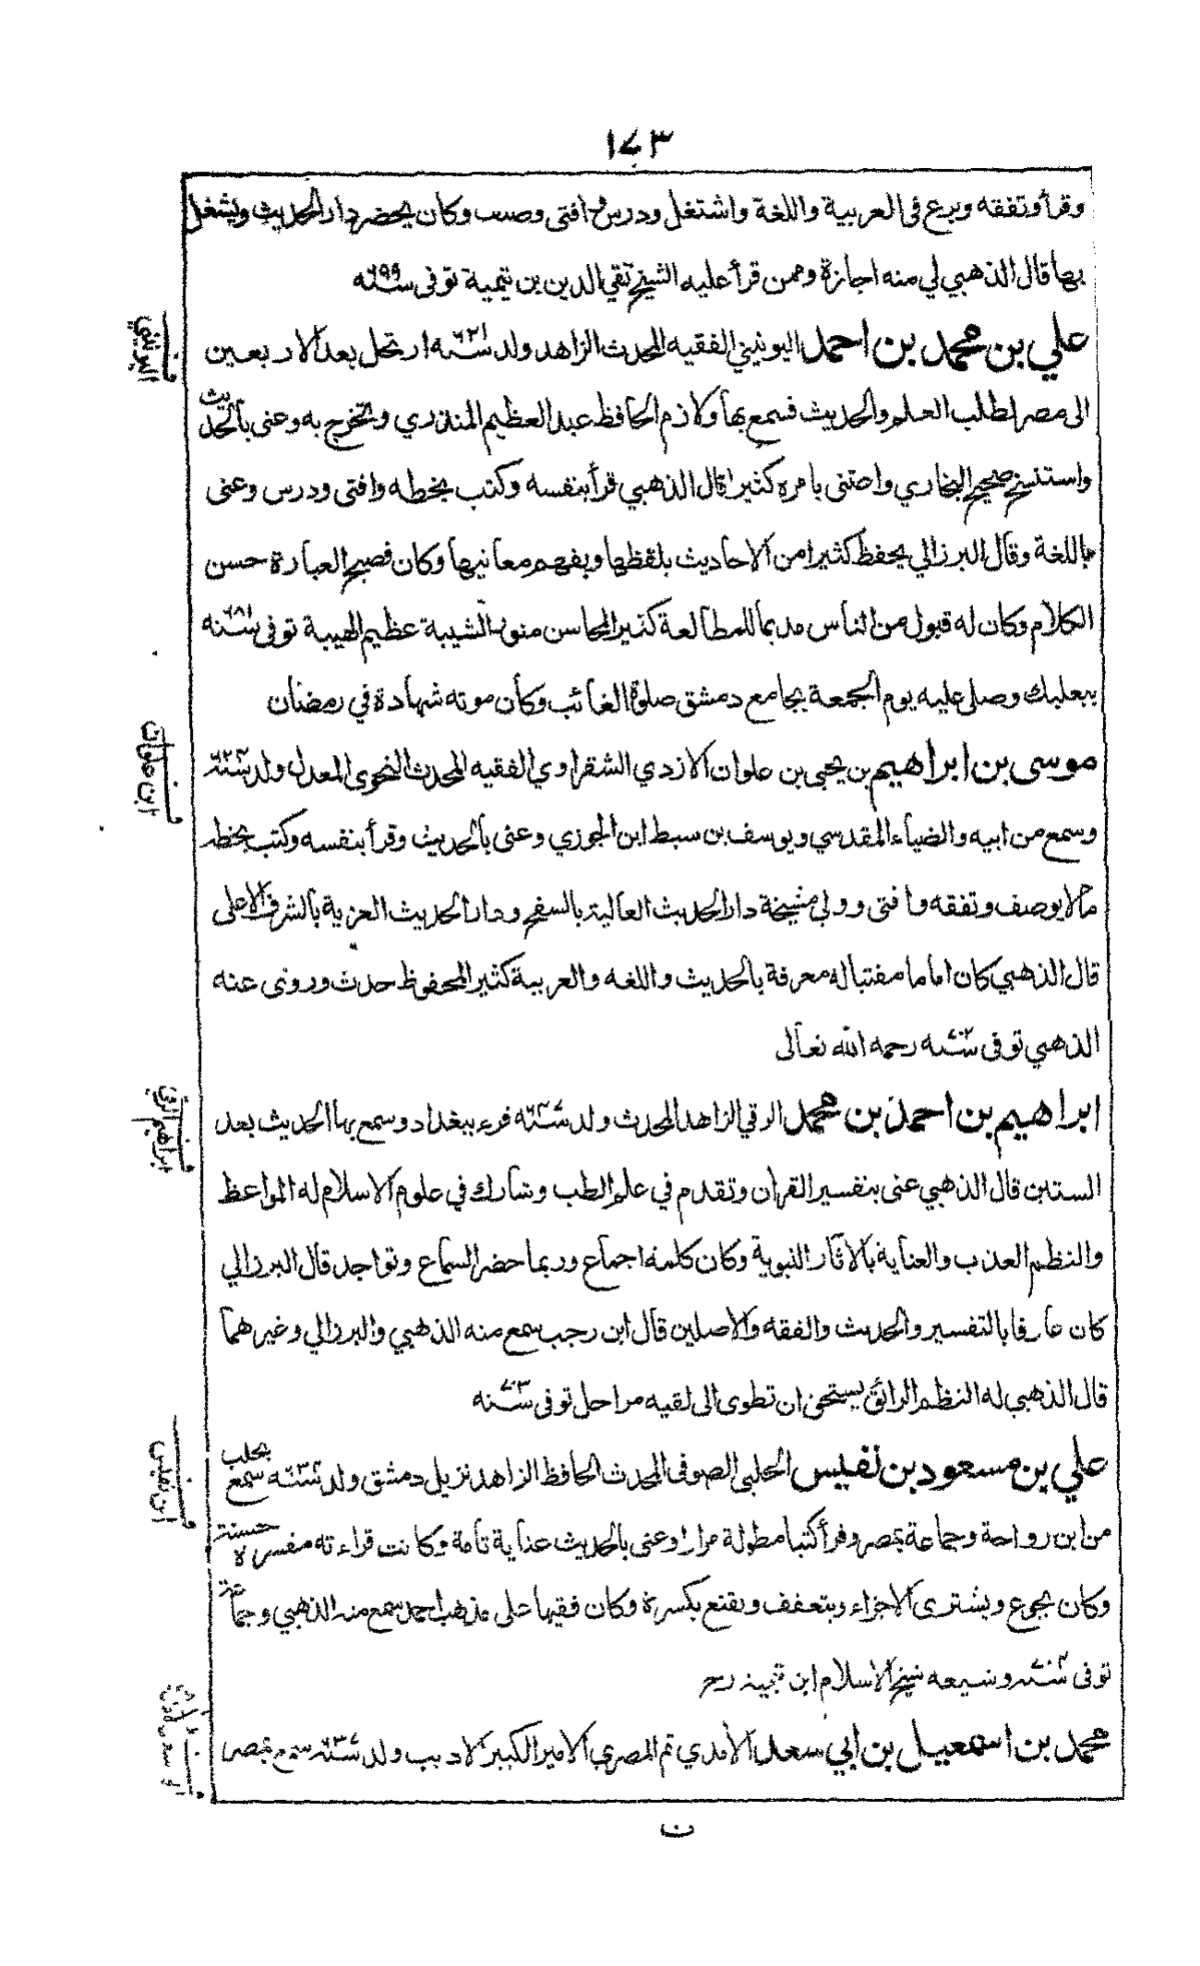 ١٧٣
وقرأ وتفقه وبرع فى العربية واللغة واشتغل ودرس وافتى وصنف وكان يحضر دار الحديث ويشغل
بها قال الذهبي لي منه اجازة وممن قرأ عليه الشيخ تقي الدين بن تيمية توفى سنة ٦٩٩
علي بن محمد بن احمد اليونيني الفقيه المحدث الزاهد ولد سنة ٦٢١ ارتحل بعد الاربعين
اليونيني
الى مصر لطلب العلم والحديث فسمع بها ولازم الحافظ عبد العظيم المنذري وتخرج به وعنى بالحديث
واستنسخ صحيح البخاري واعتنى بامره كثيرا قال الذهبي قرأ بنفسه وكتب بخطه وافتى ودرس وعنى
باللغة وقال البرزالي يحفظ كثيرا من الاحاديث بلفظها ويفهم معانيها وكان فصيح العبارة حسن
الكلام وكان له قبول من الناس مديما للمطالعة كثير المحاسن منور الشيبة عظيم الهيبة توفى سنة
ببعلبك وصلى عليه يوم الجمعة بجامع دمشق صلوة الغائب وكان موته شهادة في رمضان
موسى بن ابراهيم بن يحيى بن علوان الازدي الشقراوي الفقيه المحدث النحوى المعدل ولد سنة
ابن علوان
وسمع من ابيه والضياء المقدسي ويوسف بن سبط ابن الجوزي وعنى بالحديث وقرأ بنفسه وكتب بخطه
مالا يوصف وتفقه وافتى وولي مشيخة دار الحديث العالية بالسفح ودار الحديث العزية بالشرف الاعلى
قال الذهبي كان اماما مفتيا له معرفة بالحديث واللغه والعربية كثير المحفوظ حدث وروى عنه
الذهبي توفى سنة ٧٠٢ رحمه الله تعالى
ابراهيم بن احمد بن محمد الرقي الزاهد المحدث ولد سنة قرء ببغداد وسمع بها الحديث بعد
ابراهيم الرقي
الستين قال الذهبي عنى بتفسير القران وتقدم في علم الطب وشارك في علوم الاسلام له المواعظ
والنظم العذب والعناية بالاثار النبوية وكان كلمة اجماع وربما حضر السماع وتواجد قال البرزالي
كان عارفا بالتفسير والحديث والفقه والاصلين قال ابن رجب سمع منه الذهبي والبرزالي وغيرهما
قال الذهبي له النظم الرائق يستحق ان تطوى الى لقيه مراحل توفى سنة ٧٠٣
علي بن مسعود بن نفيس الحلبي الصوفى المحدث الحافظ الزاهد نزيل دمشق ولد سنة سمع بحلب
ابن نفيس
من ابن رواحة وجماعة بمصر وقرأ كتبا مطولة مرارا وعنى بالحديث عناية تامة وكانت قراءته مفسرة حسنة
وكان يجوع ويشترى الاجزاء ويتعفف ويقنع بكسرة وكان فقيها على مذهب احمد سمع منه الذهبي وجماعة
توفى سنة وشيعه شيخ الاسلام ابن تيمية رحمه
محمد بن اسمعيل بن ابي سعد الآمدي ثم المصري الامير الكبير الاديب ولد سنة سمع بمصر
ن